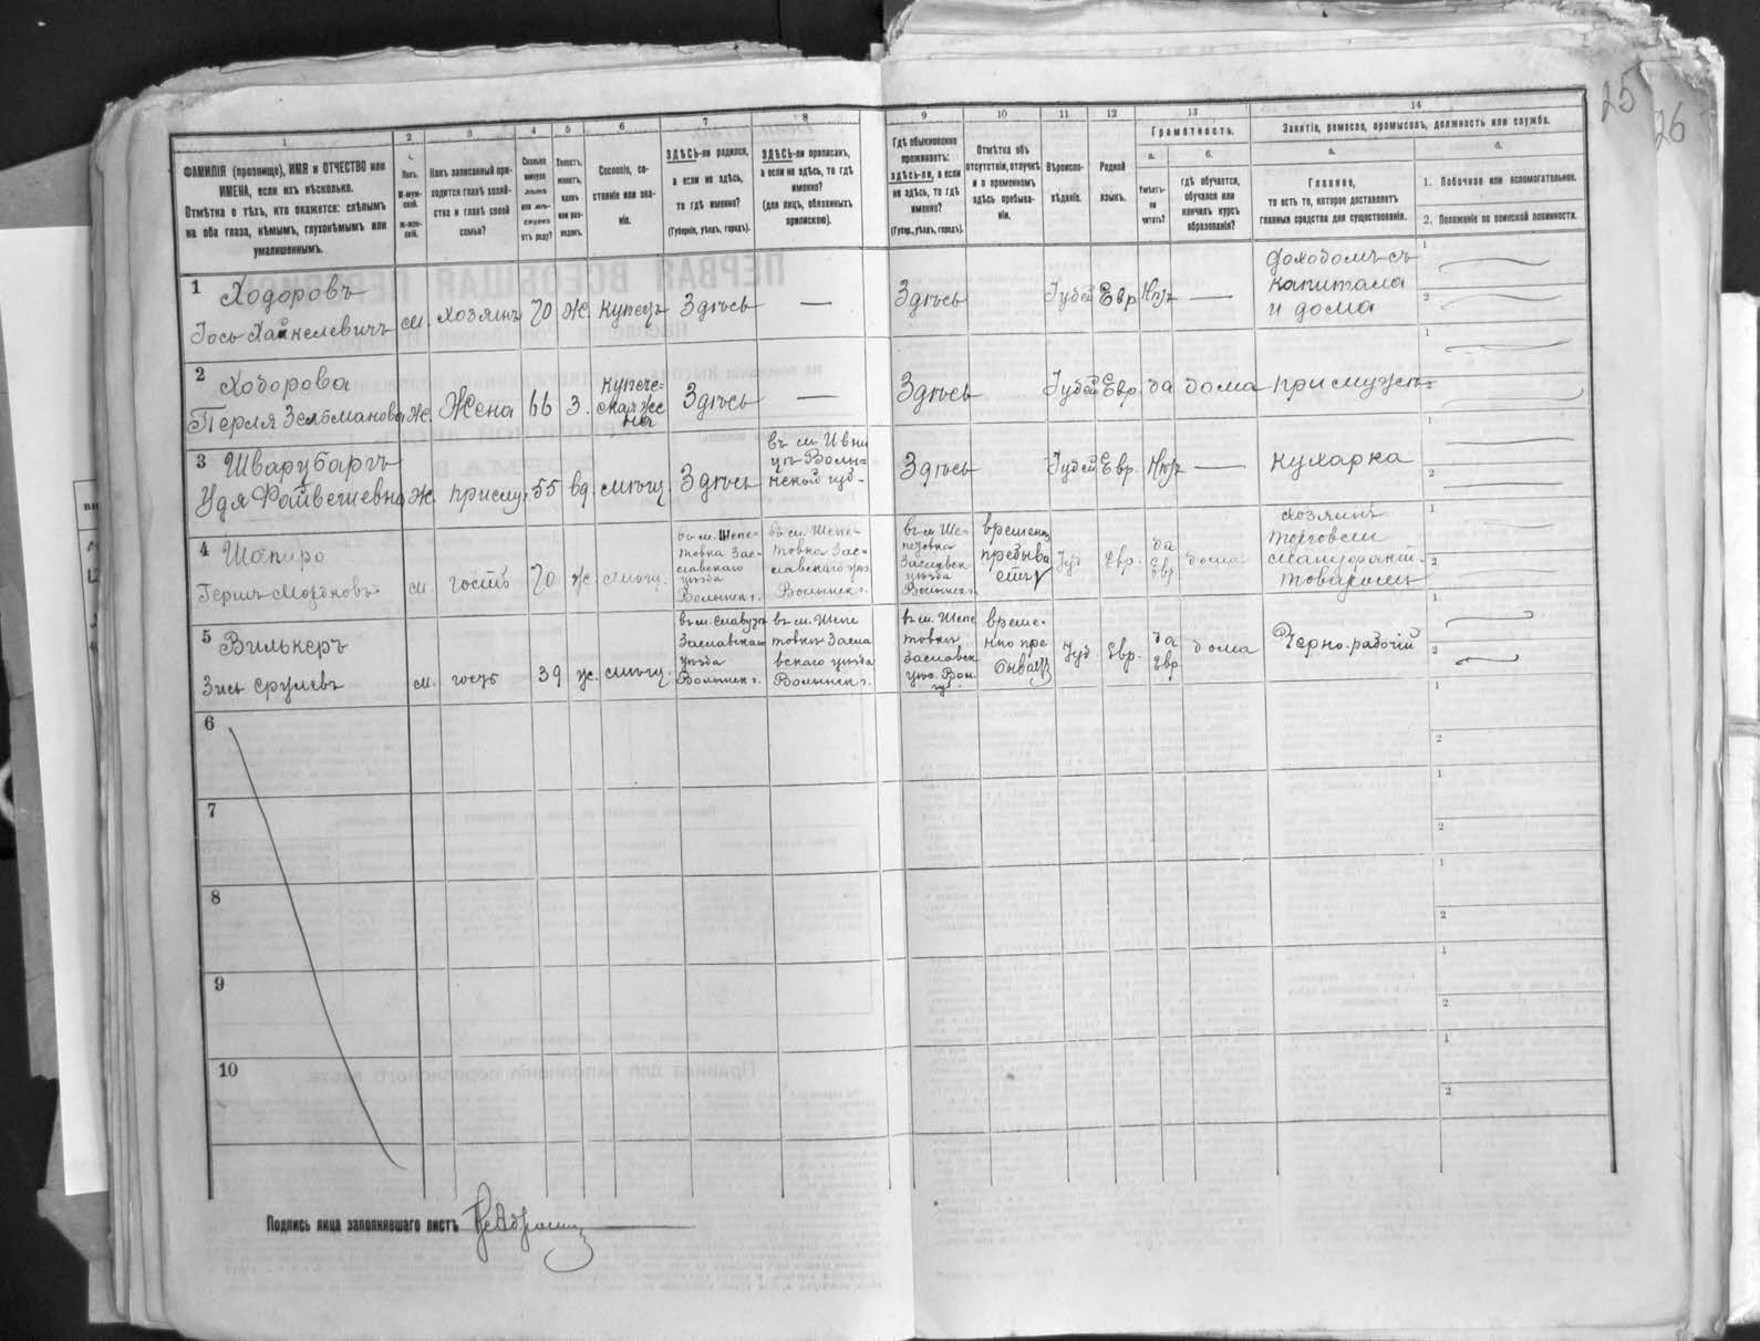 25
26
1
2
3
4
5
6
7
8
9
10
11
12
13
14
ФАМИЛІЯ (прозвище), ИМЯ и ОТЧЕСТВО или
ИМЕНА, если ихъ нѣсколько.
Отмѣтка о тѣхъ, кто окажется: слѣпымъ
на оба глаза, нѣмымъ, глухонѣмымъ или
умалишеннымъ.
Полъ.
М-муж-
ской.
Ж-жен-
скій.
Какъ записанный при-
ходится главѣ хозяй-
ства и главѣ своей
семьи?
Сколько
минуло
лѣтъ
или мѣ-
сяцевъ
отъ роду?
Холостъ,
женатъ,
вдовъ
или раз-
веденъ.
Сословіе, со-
стояніе или зва-
ніе.
ЗДѢСЬ-ли родился,
а если не здѣсь,
то гдѣ именно?
(Губернія, уѣздъ, городъ).
ЗДѢСЬ-ли приписанъ,
а если не здѣсь, то гдѣ
именно?
(для лицъ, обязанныхъ
припискою).
Гдѣ обыкновенно
проживаетъ:
здѣсь-ли, а если
не здѣсь, то гдѣ
именно?
(Губер., уѣздъ, городъ).
Отмѣтка объ
отсутствіи, отлучкѣ
и о временномъ
здѣсь пребыва-
ніи.
Вѣроиспо-
вѣданіе.
Родной
языкъ.
Грамотность.
а.
б.
Умѣетъ-
ли
читать?
гдѣ обучается,
обучался или
кончилъ курсъ
образованія?
Занятіе, ремесло, промыселъ, должность или служба.
а.
б.
Главное,
то есть то, которое доставляетъ
главныя средства для существованія.
1. Побочное или вспомогательное.
2. Положеніе по воинской повинности.
1 Ходоровъ
Іось Хайкелевичъ м. хозяинъ 70 Ж. купецъ Здѣсь — Здѣсь Іудей Евр Нѣтъ — доходомъ съ
капитала
и дома
2 Ходорова
Перля Зельманова Ж. Жена 66 З. купече-
ская же
на Здѣсь — Здѣсь Іудей Евр. да дома при мужѣ
3 Шварцбаргъ
Удя Файвешевна Ж. прислуг 55 вд. мѣщ. Здѣсь въ м. Ивни
цѣ Волы-
нской губ. Здѣсь Іудей Евр. Нѣтъ — кухарка
4 Шапиро
Гершъ м. гость 70 ж. мѣщ. въ м. Шепе-
товка Зас-
лавскаго
уѣзда
Волынск г. въ м. Шепе-
товка Зас-
лавскаго уѣз
Волынск г. въ м. Ше-
петовка
Заславск
уѣзда
Волынск г. временно
пребыва
етъ Іуд Евр. да
Евр дома хозяинъ
торговли
товаромъ
5 Вилькеръ
Зись Срулевъ м. гость 39 ж. мѣщ. въ м. Славутѣ
Заславскаго
уѣзда
Волынск г. въ м. Шепе
товкѣ Засла
вскаго уѣзда
Волынск г. въ м. Шепе
товкѣ
Заславск
уѣз. Вол.
гу. време-
нно пре
бываетъ Іуд. Евр. да
Евр дома Черно-рабочій
6
7
8
9
10
Подпись лица заполнявшаго листъ